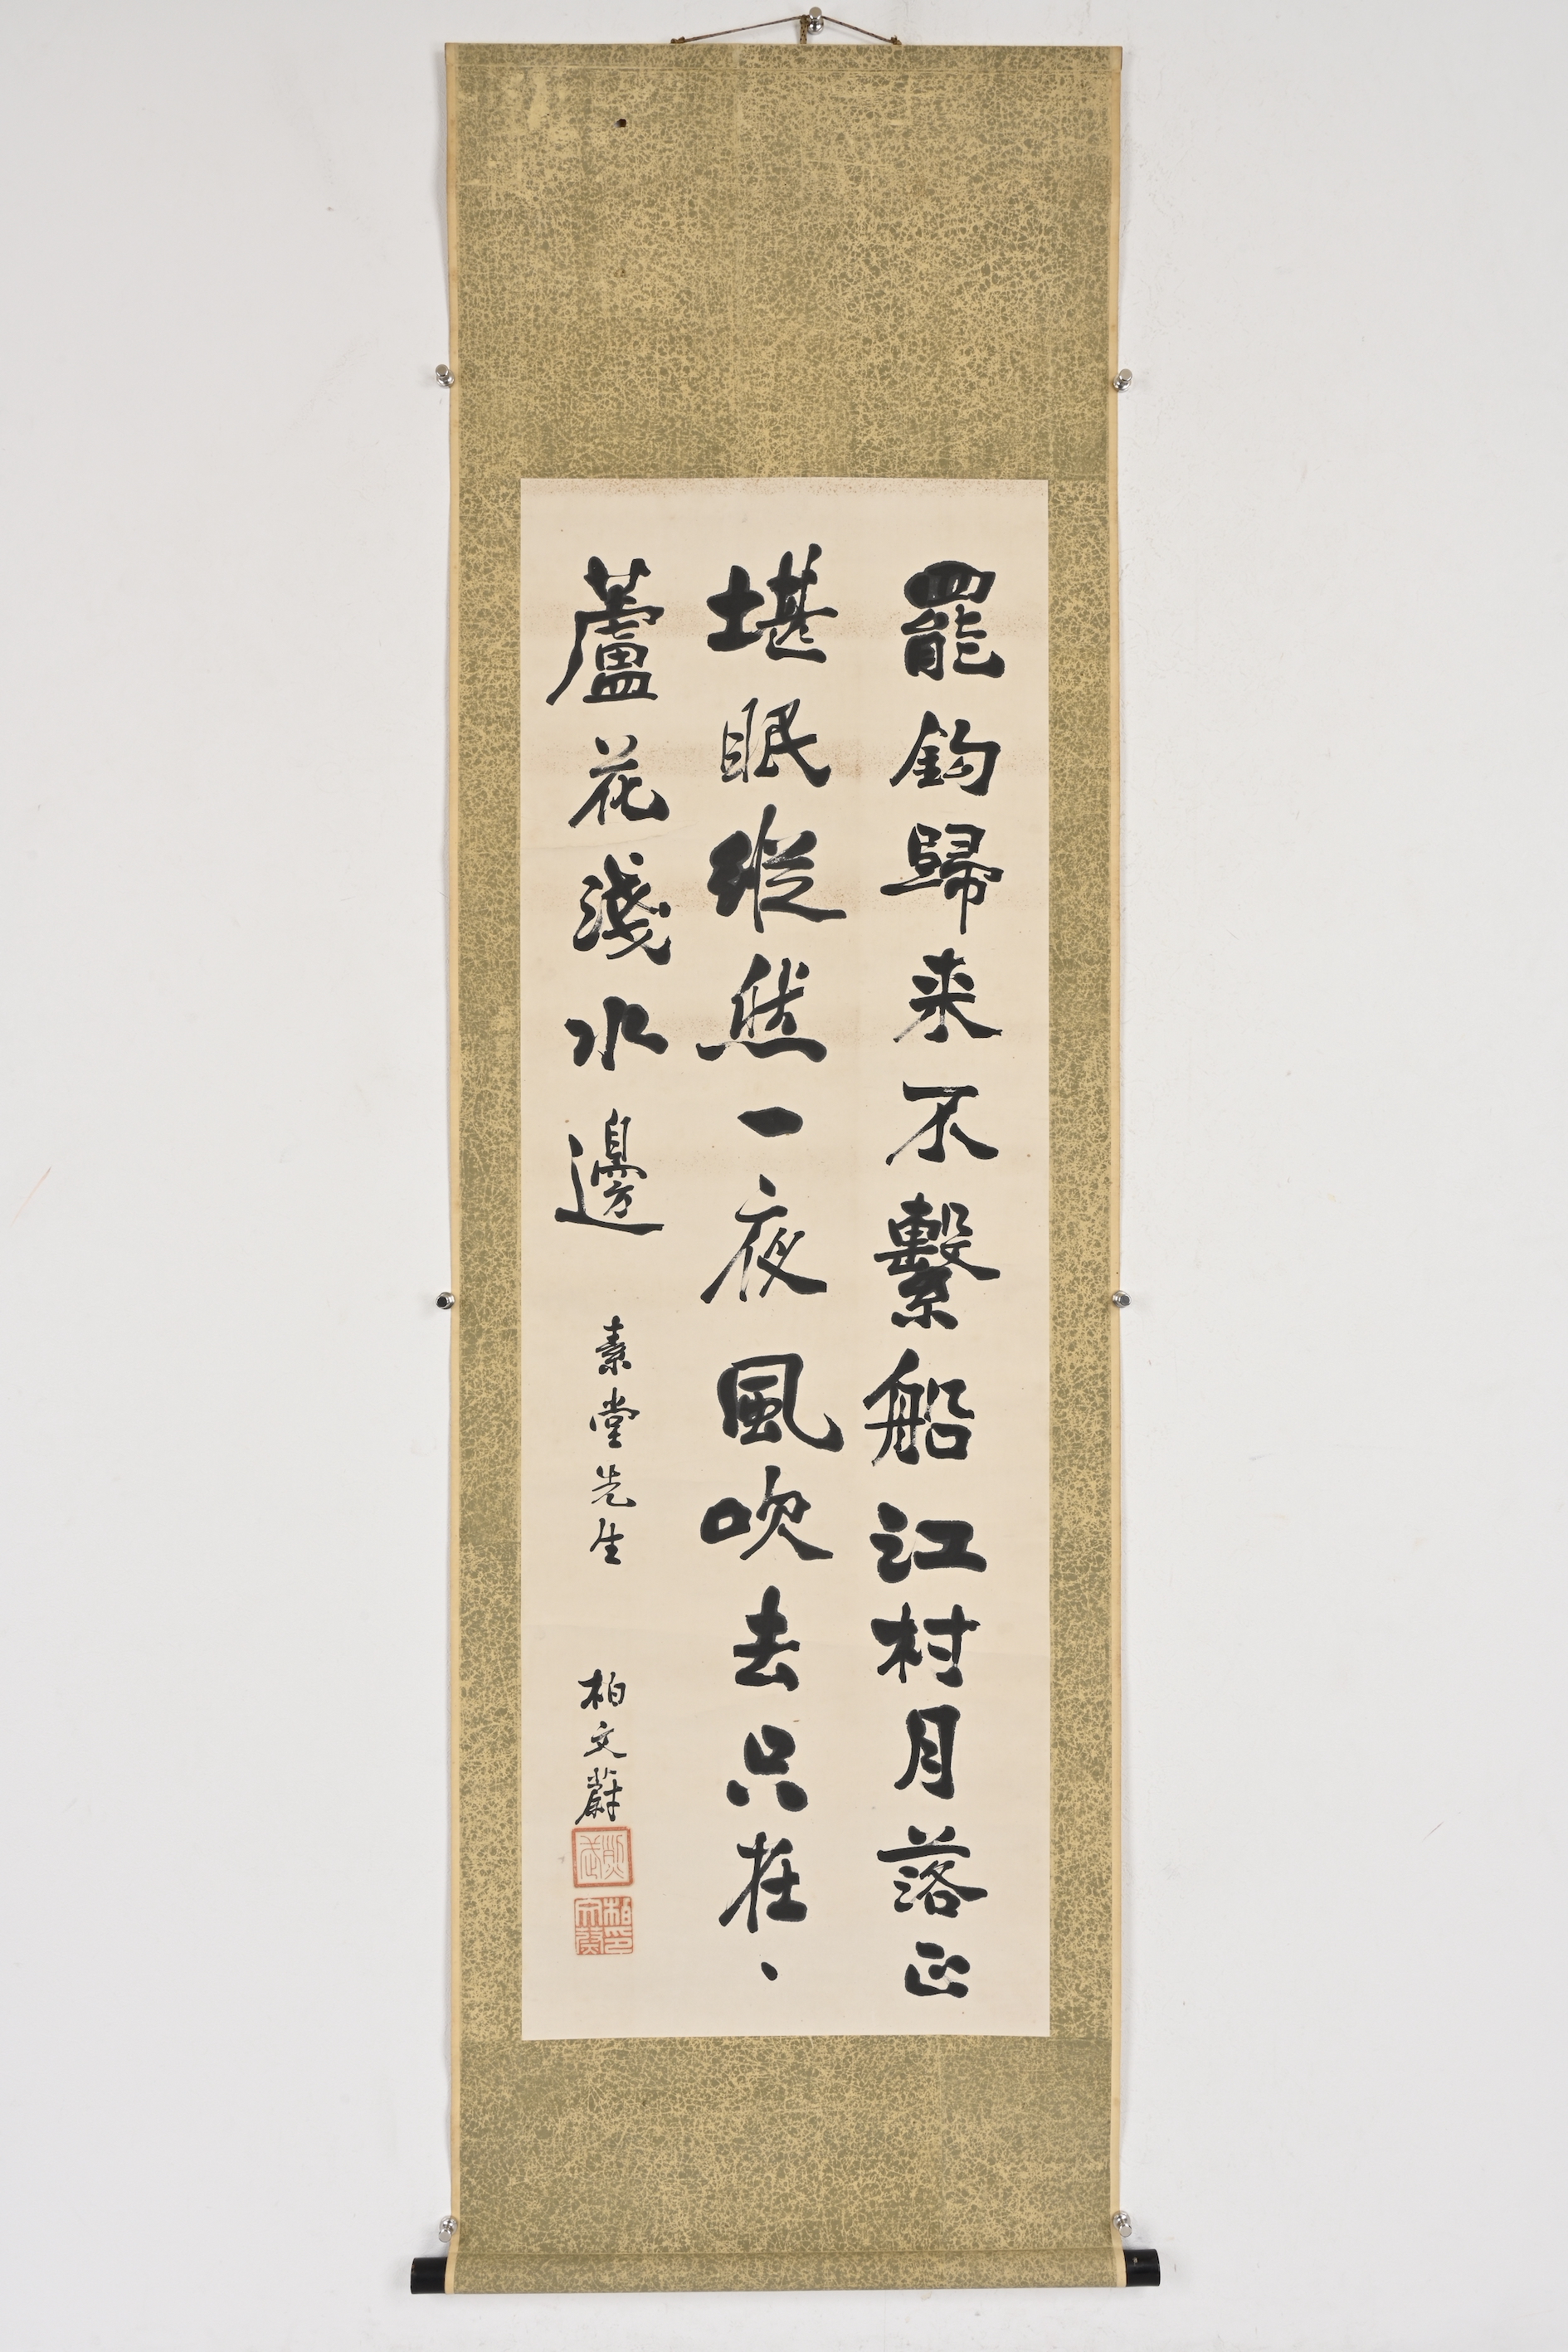 罷鈎歸来不繫船江村月落正
堪眠縱然一夜風吹去只在、
蘆花淺水邊
素堂先生
柏文蔚